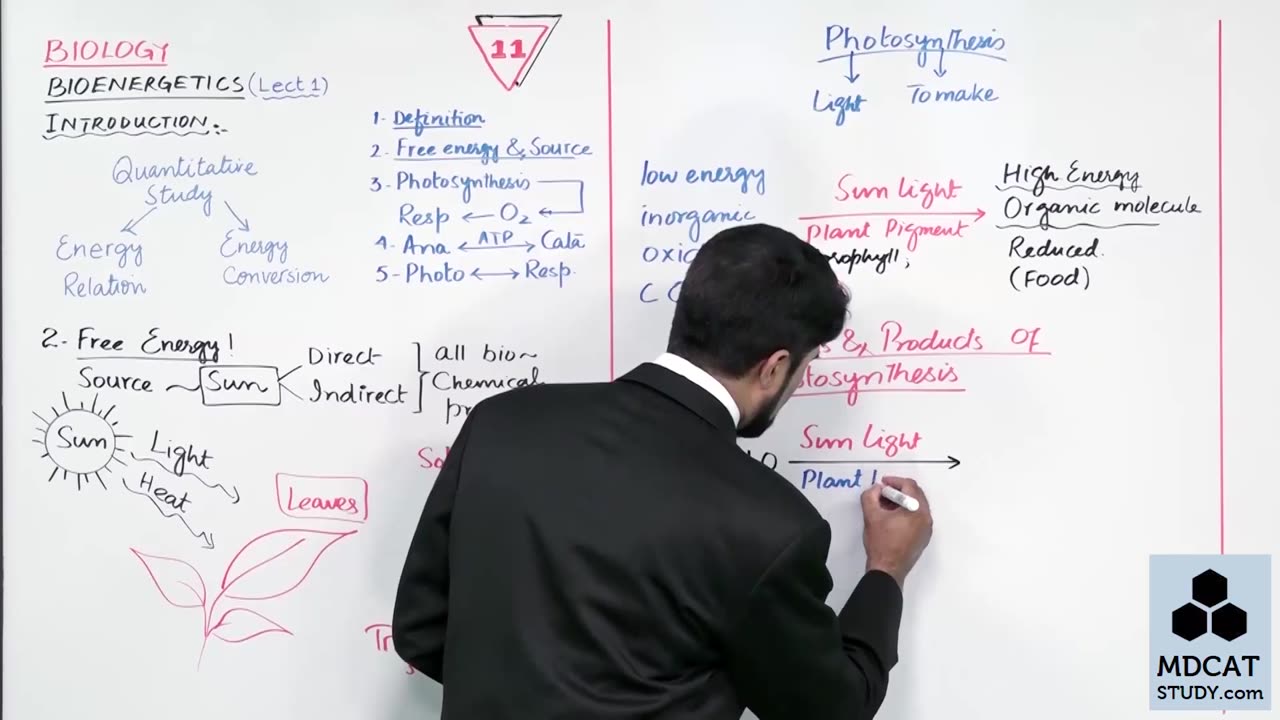 BIOLOGY
BIOENERGETICS (Lect 1)
INTRODUCTION:-
Quantitative
Study
Energy
Relation
Energy
Conversion
11
1- Definition
2- Free energy & Source
3- Photosynthesis
Resp ← O₂ ←
4- Ana ←ATP→ Cata
5- Photo ←→ Resp.
2- Free Energy!
Source
Sun
Direct
Indirect
all bio~
Chemical
Sun
Light
Heat
Leaves
Photosynthesis
Light
To make
low energy
inorganic
Sun light
Plant Pigment
High Energy
Organic molecule
Reduced.
(Food)
& Products of
Sun light
Plant
MDCAT
STUDY.com